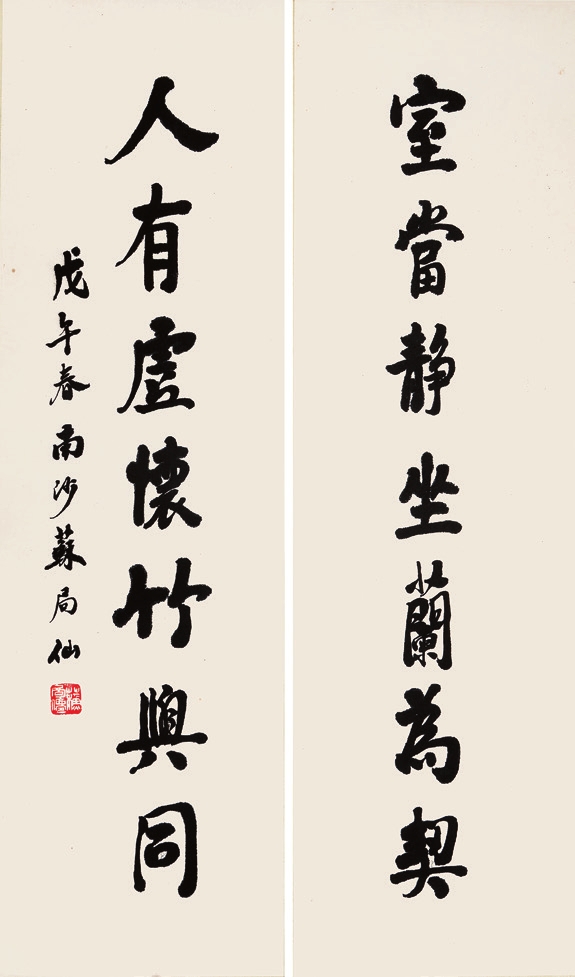 室當静坐蘭為契
人有虛懷竹與同
戊午春南沙蘇局仙